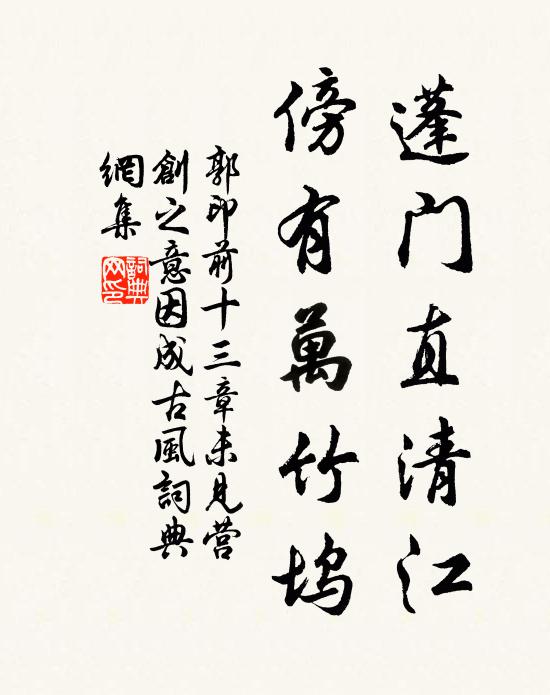 蓬门直清江
傍有萬竹坞
郭印前十三章未見营
創之意因成古風詞典
網集
詞典
网印